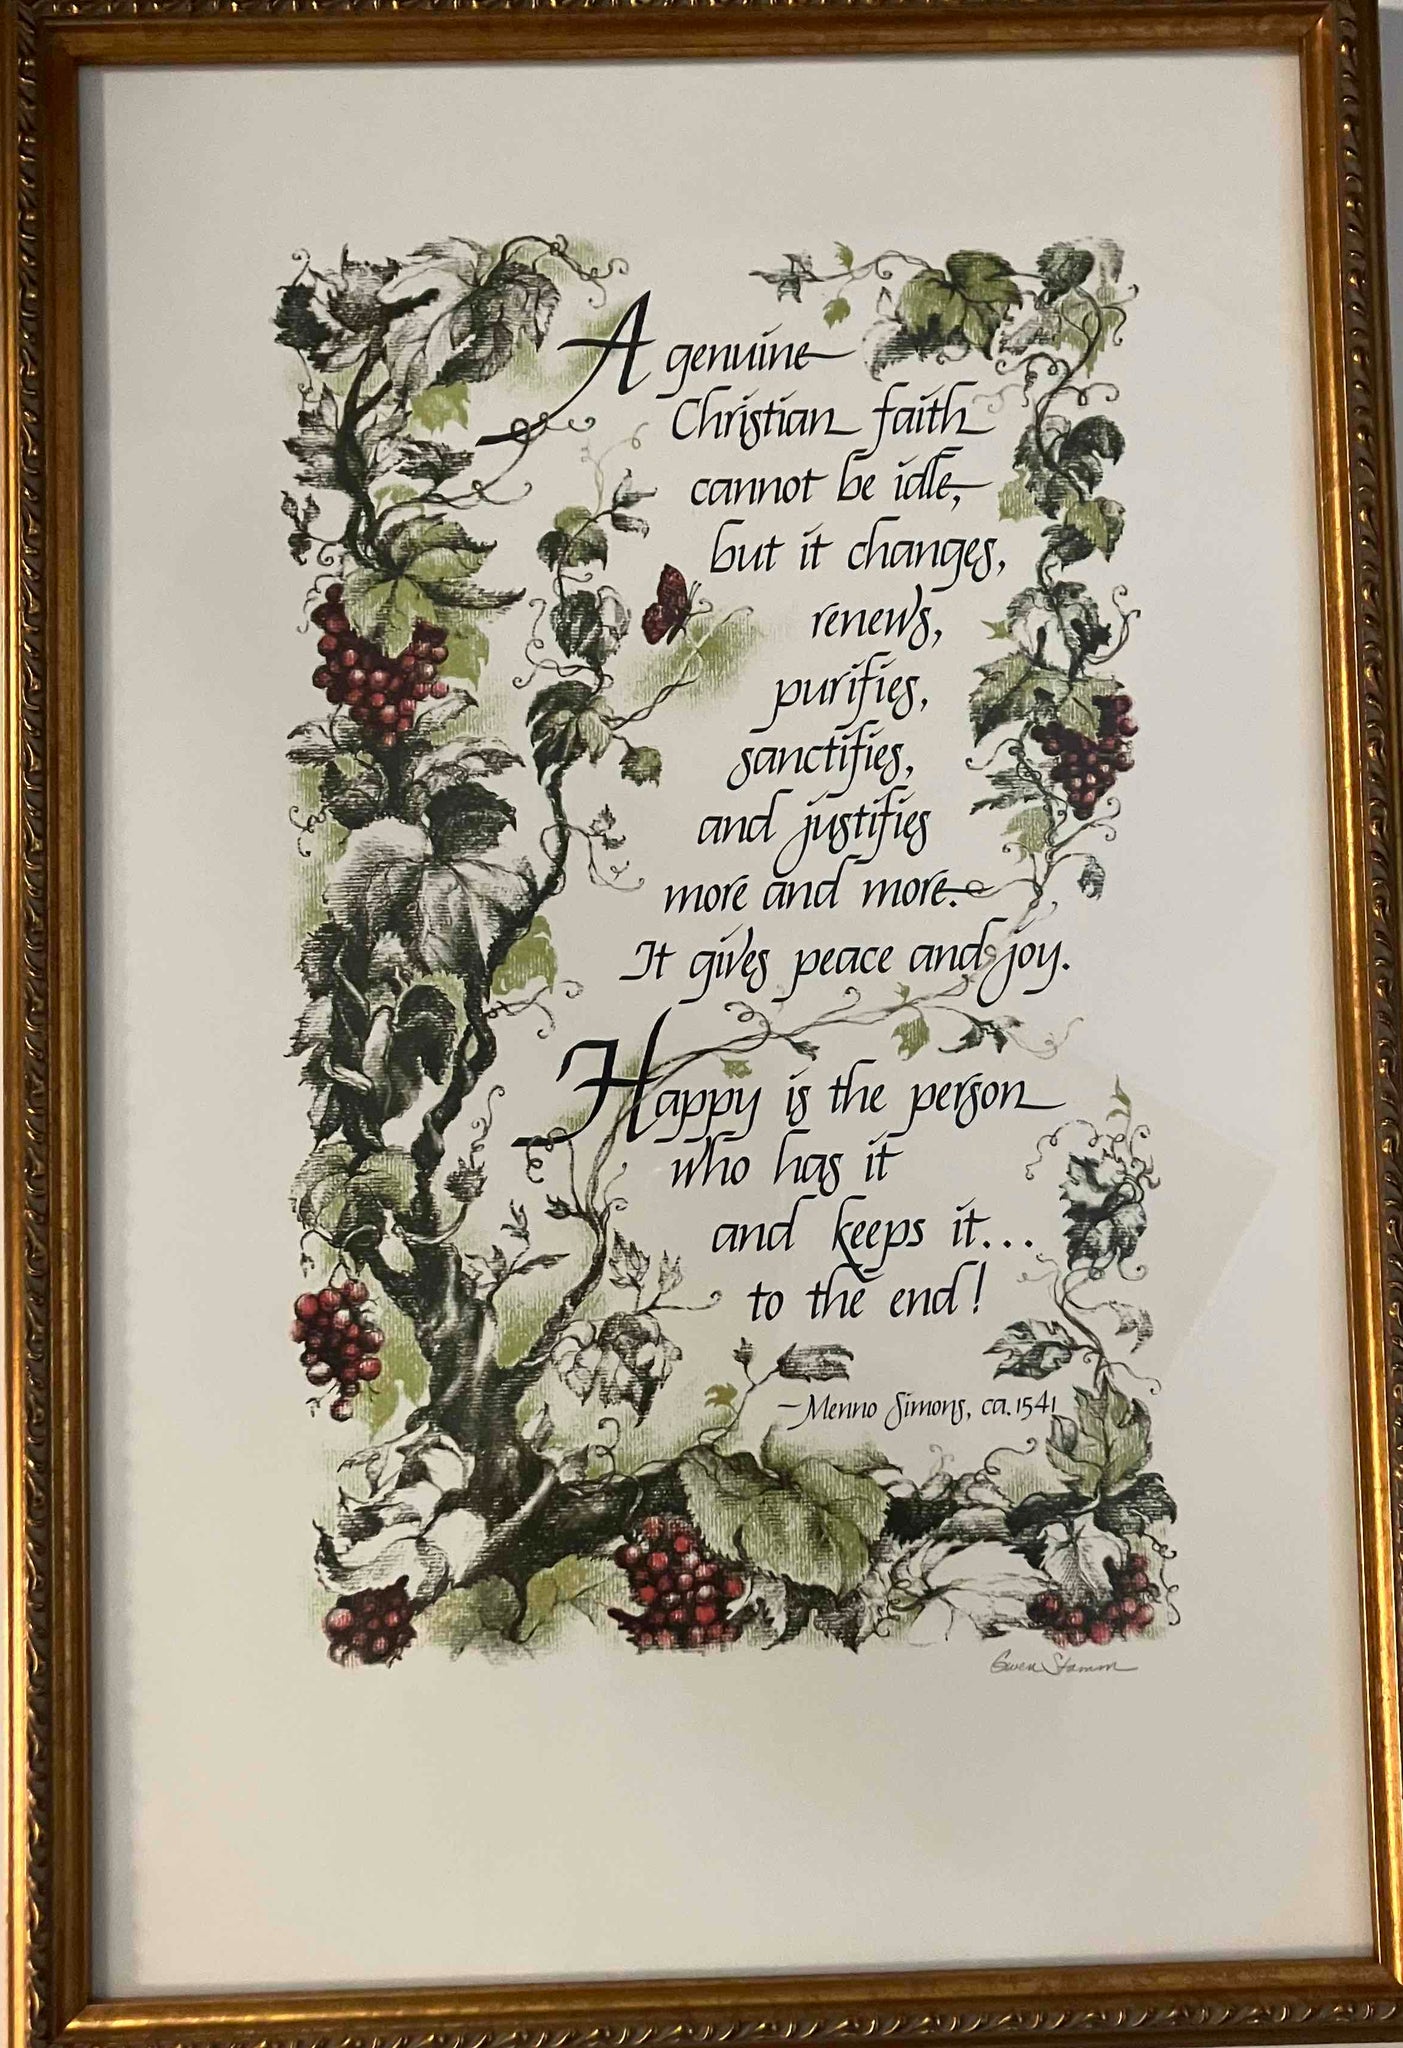 A genuine
Christian faith
cannot be idle,
but it changes,
renews,
purifies,
sanctifies,
and justifies
more and more.
It gives peace and joy.
Happy is the person
who has it
and keeps it...
to the end!
—Menno Simons, ca. 1541
Gwen Stamm